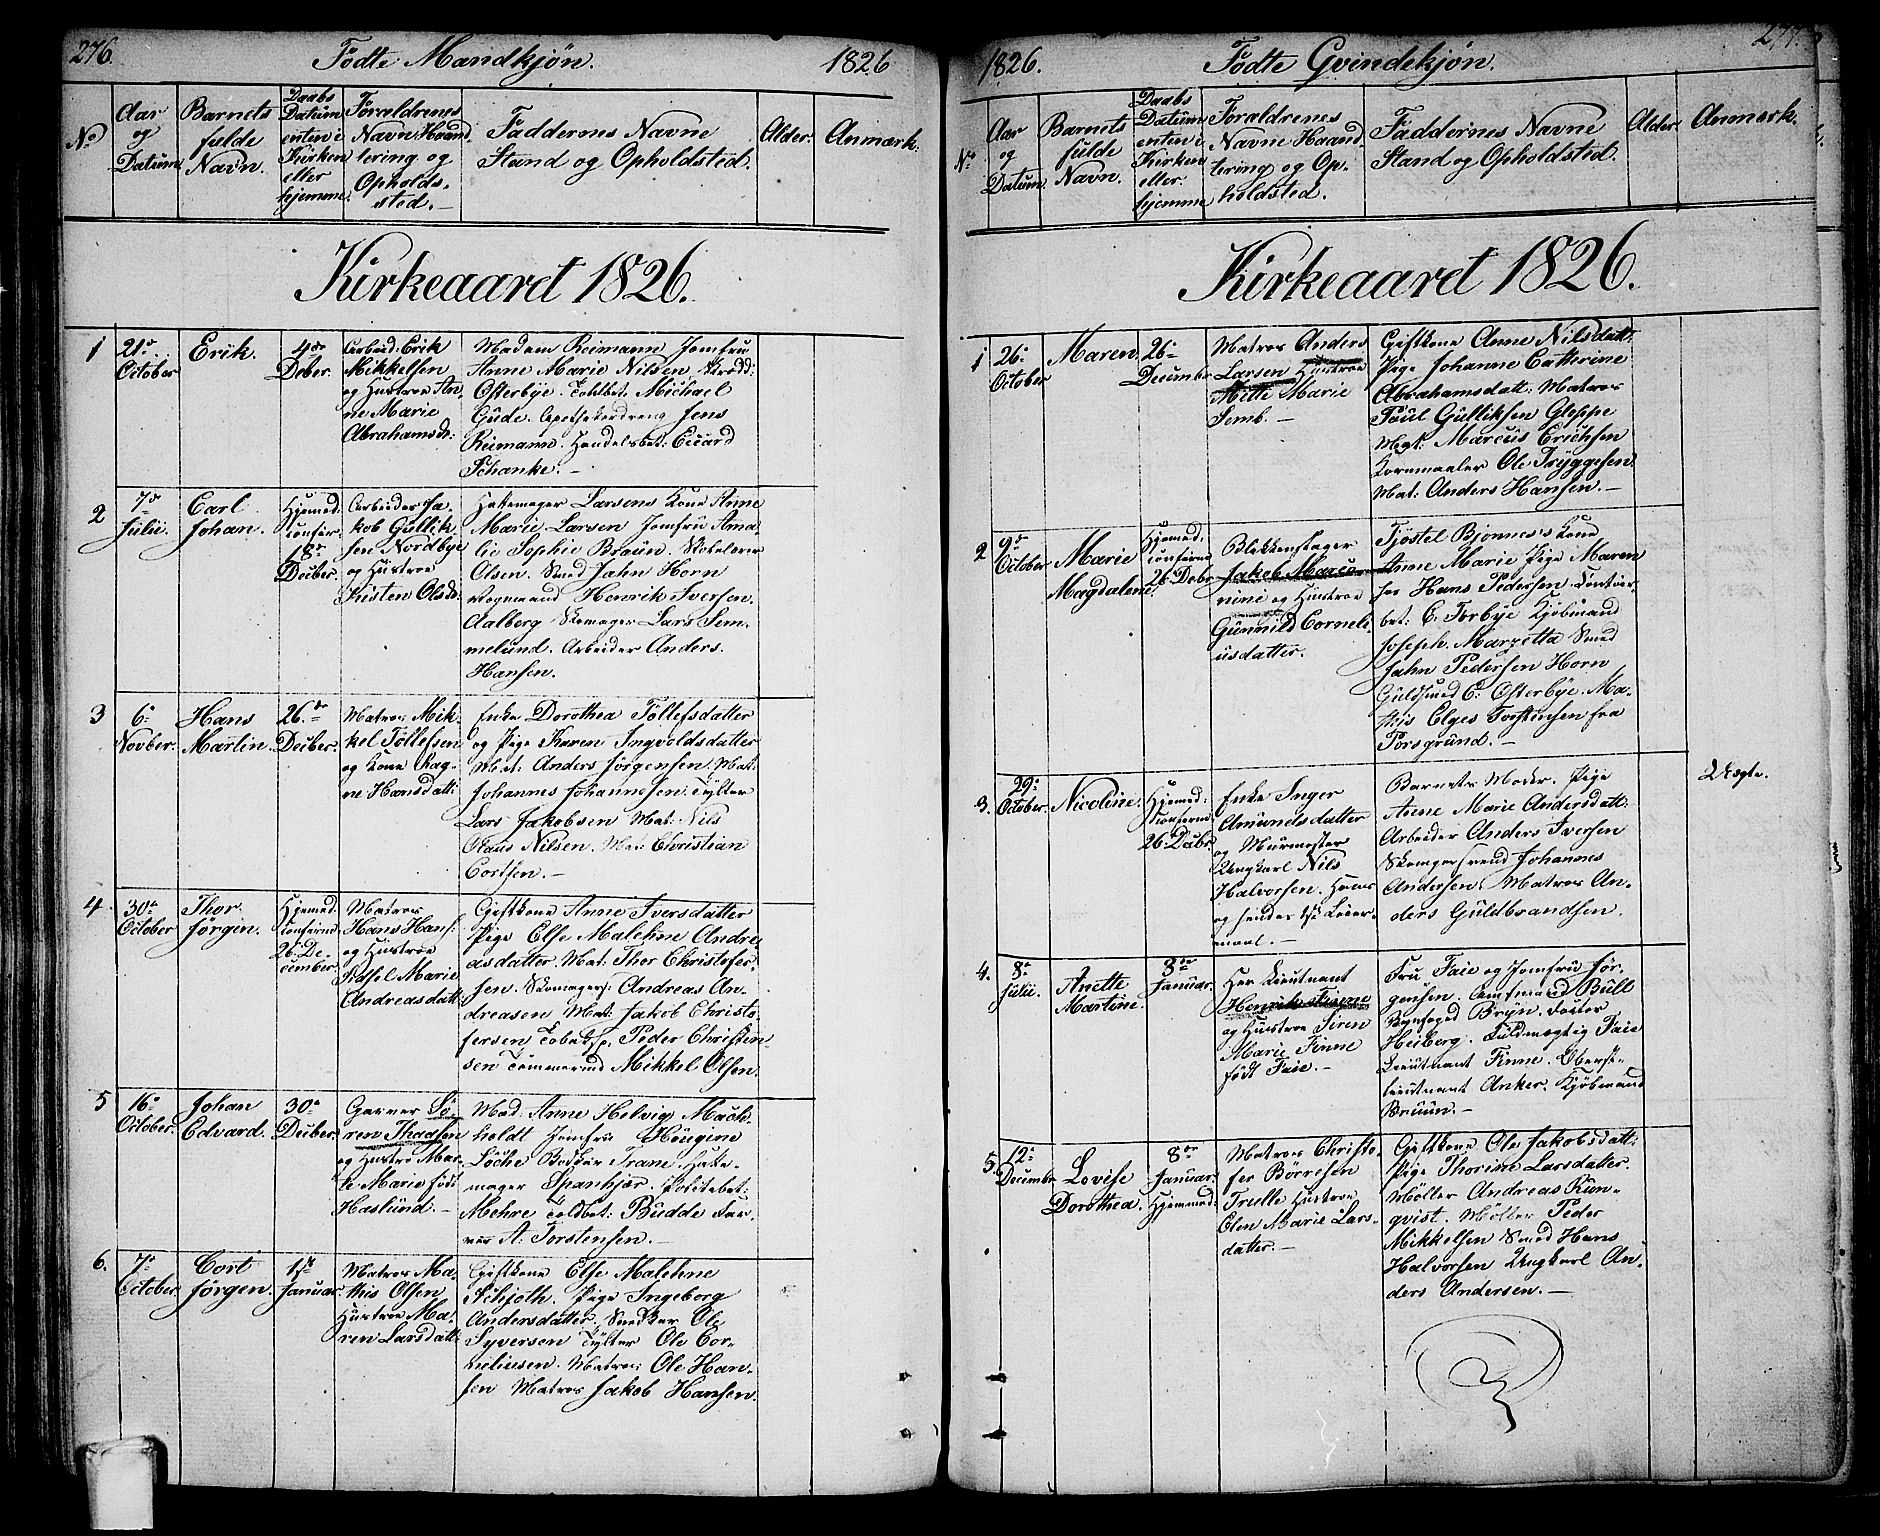 276.
Födte Mandkjøn.
1826
No
Aar
og
Datum
Barnets
fulde
Navn.
Daabs
Datum
enten i
Kirken
eller
hjemme.
Forældrenes
Navn, Haand
tering og
Opholds-
sted.
Faddernes Navne
Stand og Opholdsted.
Alder.
Anmærk.
Kirkeaaret 1826.
1
21de
October
Erik.
4de
Deber.
Arbeid: Erik
Mikkelsen
og Hustroe An
ne Marie
Abrahamsd:
Madam Reimann Jomfru
Anne Marie Nilsen
Österbye. Toldbet: Michael
Gude. Apothekerdreng Jens
Reimann. Handelsbet: Eduard
Schanke. –
2
7de
Julii.
Carl
Johan.
Hjemed.
confir.
18de
Deciber.
Arbeider Ja-
kob Gullik
sen Nordbye
og Hustroe
Kisten Olsd:
Hattemager Larsens Kone Anne
Marie Larsen Jomfru Ama-
lie Sophie Braun. Skolelærer
Olsen. Smed Jahn Horn
Vognmand Henrik Iversen.
Aalberg Skomager Lars Sem-
melund. Arbeider Anders.
Hansen.
3
6te
Novber.
Hans
Martin.
26de
Deciber.
Matros Mik-
kel Tollefsen
og Kone Rag-
ne Hansdatt:
Enke Dorothea Tollefsdatter
og Pige Karen Ingvoldsdatter
Mat: Anders Jørgensen. Mat:
Johannes Johannesen. Tylter
Lars Jakobsen Mat: Nils
Claus Nilsen. Mat: Christian
Cortsen. –
4
30te
October
Thor
Jørgen.
Hjemed.
confirmd
26. De-
cember.
Matros
Hans Hans:
og Hustroe
Sidsel Marie
Andreasdatt:
Giftkone Anne Iversdatter
Pige Else Malehne Andre-
asdatter. Mat: Thor Christofer-
sen. Skomagers: Andreas An-
dreasen Mat: Jakob Christo-
fersen Peder Christen-
sen Tømmermd Mikkel Olsen.
5
16te
October.
Johan
Edvard.
30te
Deciber.
Garver Sö-
ren Thaasen
og Hustro Mar-
te Marie födt
Haslund. –
Mad. Anne Helvig Mach-
holdt Jomfru Hougine
Löche Bödker Trane. Hatte-
mager Spanhjær. Politibet:
Mehre Toldbet: Budde Far-
ver A: Torstensen. –
6.
7de
October
Cort
Jørgen.
1ste
Januar.
Matros Ma-
this Olsen
Hustroe Ma-
ren Larsdatt:
Giftkone Else Malehne
Schjoth. Pige Ingeborg
Andersdatter. Snedker Ole
Syversen Tylter Ole Cor-
neliusen. Matros: Ole Han-
sen Matros Jakob Hansen.
1826.
Födte Qvindekjøn.
277.
No
Aar
og
Datum.
Barnets
fulde
Navn.
Daabs
Datum
enten i
Kirken
eller
hjemme
Foraldrenes
Navne Haand
tering og Op-
holdsted.
Faddernes Navne
Stand og Opholdsted.
Alder.
Anmærk.
Kirkeaaret 1826.
1
26te
October
Maren.
26te
Decembr.
Matros Anders
Larsen Hustroe
Mette Marie
Semb. –
Giftkone Anne Nilsdatt:
Pige Johanne Cathrine
Abrahamsdatt: Matros
Poul Gulliksen Gleppe
Ungk: Marcus Erichsen
Kornmaaler Ole Tryggesen
Mat: Anders Hansen. –
2
9de
October
Marie
Magdalene.
Hjemed:
confirmd
26. Debr.
Blikkenslager
Jakob Marco-
nini og Hustroe
Gunnild Corneli-
usdatter.
Tjöstel Bjönnes's Kone
Anne Marie Pige Maren
Hans Pedersen. Contoir-
bet: C. Torbye Kjöbmand
Joseph Marzetta Smed
Jahn Pedersen Horn
Guldsmed C: Österbye. Ma-
this Elges Torstensen fra
Porsgrund. –
3.
29de
October.
Nicoline.
Hjemed:
confirmd
26. Debr.
Enke Inger
Amundsdatter
og Murmester
Ungkarl Nils
Halvorsen. Hans
og hendes 1ste Leier-
maal. –
Barnets Moder. Pige
Anne Marie Andersdatt:
Arbeider Anders Iversen
Skomagersvend Johannes
Andersen. Matros An-
ders Guldbrandsen.
Uægte.
4.
8de
Julii.
Anette
Martine.
3die
Januar.
Her Lieutnant
Henrik Finne
og Hustroe Siren
Marie Finne
födt Faie. –
Fru Faie og Jomfru Jør-
gensen. Amtmand Bull
Byefoged Bryn. Foster
Heiberg. Fuldmægtig Faie
Lieutnant Finne. Oberst-
lieutnant Anker. Kjöbmand
Bruun. –
5.
12te
Decembr
Lovise
Dorothea.
8de
Januar.
Hjemmed:
Matros Christo-
fer Börresen
Trulle Hustroe
Olen Marie Lars-
datter. –
Giftkone Ole Jakobsdatt:
Pige Thorine Larsdatter.
Möller Andreas Run-
qvist. Möller Peder
Mikkelsen Smed Hans
Halvorsen Ungkarl An-
ders Andersen. –